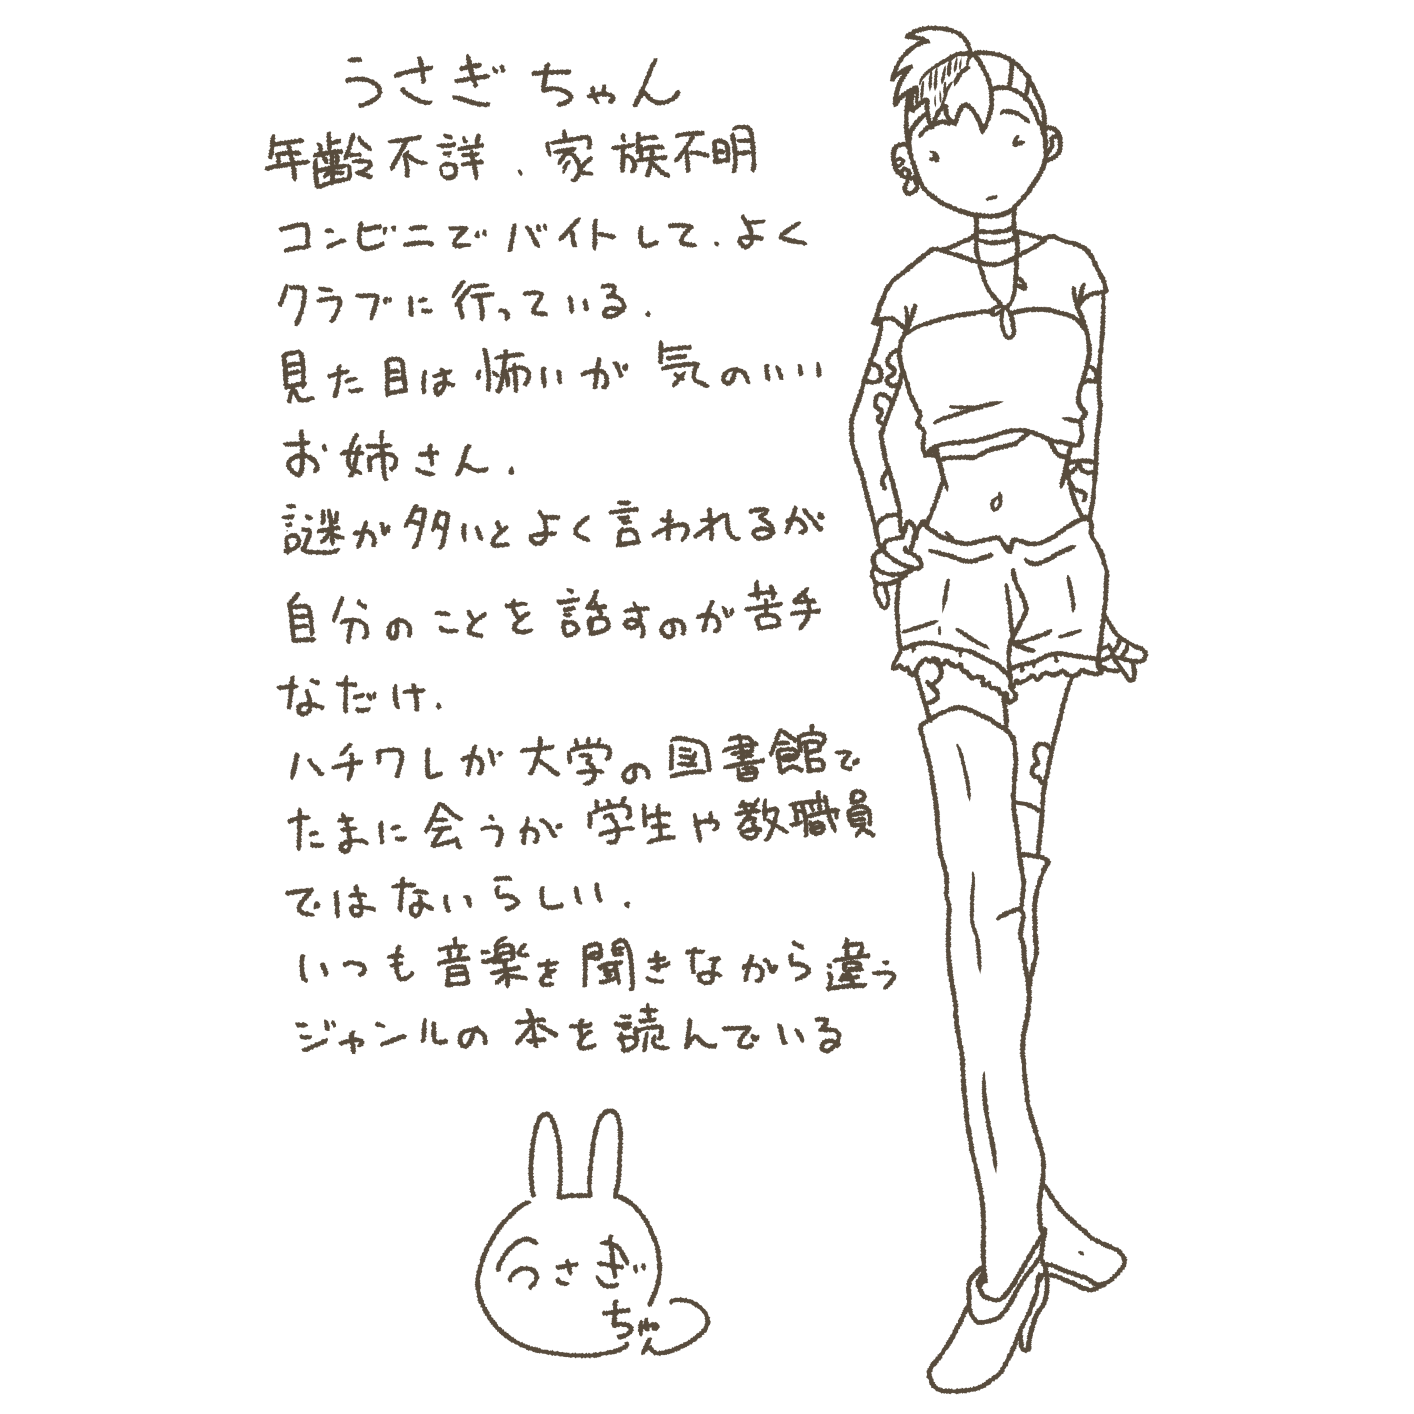 うさぎちゃん
年齢不詳.家族不明
コンビニでバイトして.よく
クラブに行っている.
見た目は怖いが気のいい
お姉さん.
謎が多いとよく言われるが
自分のことを話すのが苦手
なだけ.
ハチワレが大学の図書館で
たまに会うが学生や教職員
ではないらしい.
いつも音楽を聞きながら違う
ジャンルの本を読んでいる
うさぎ
ちゃん